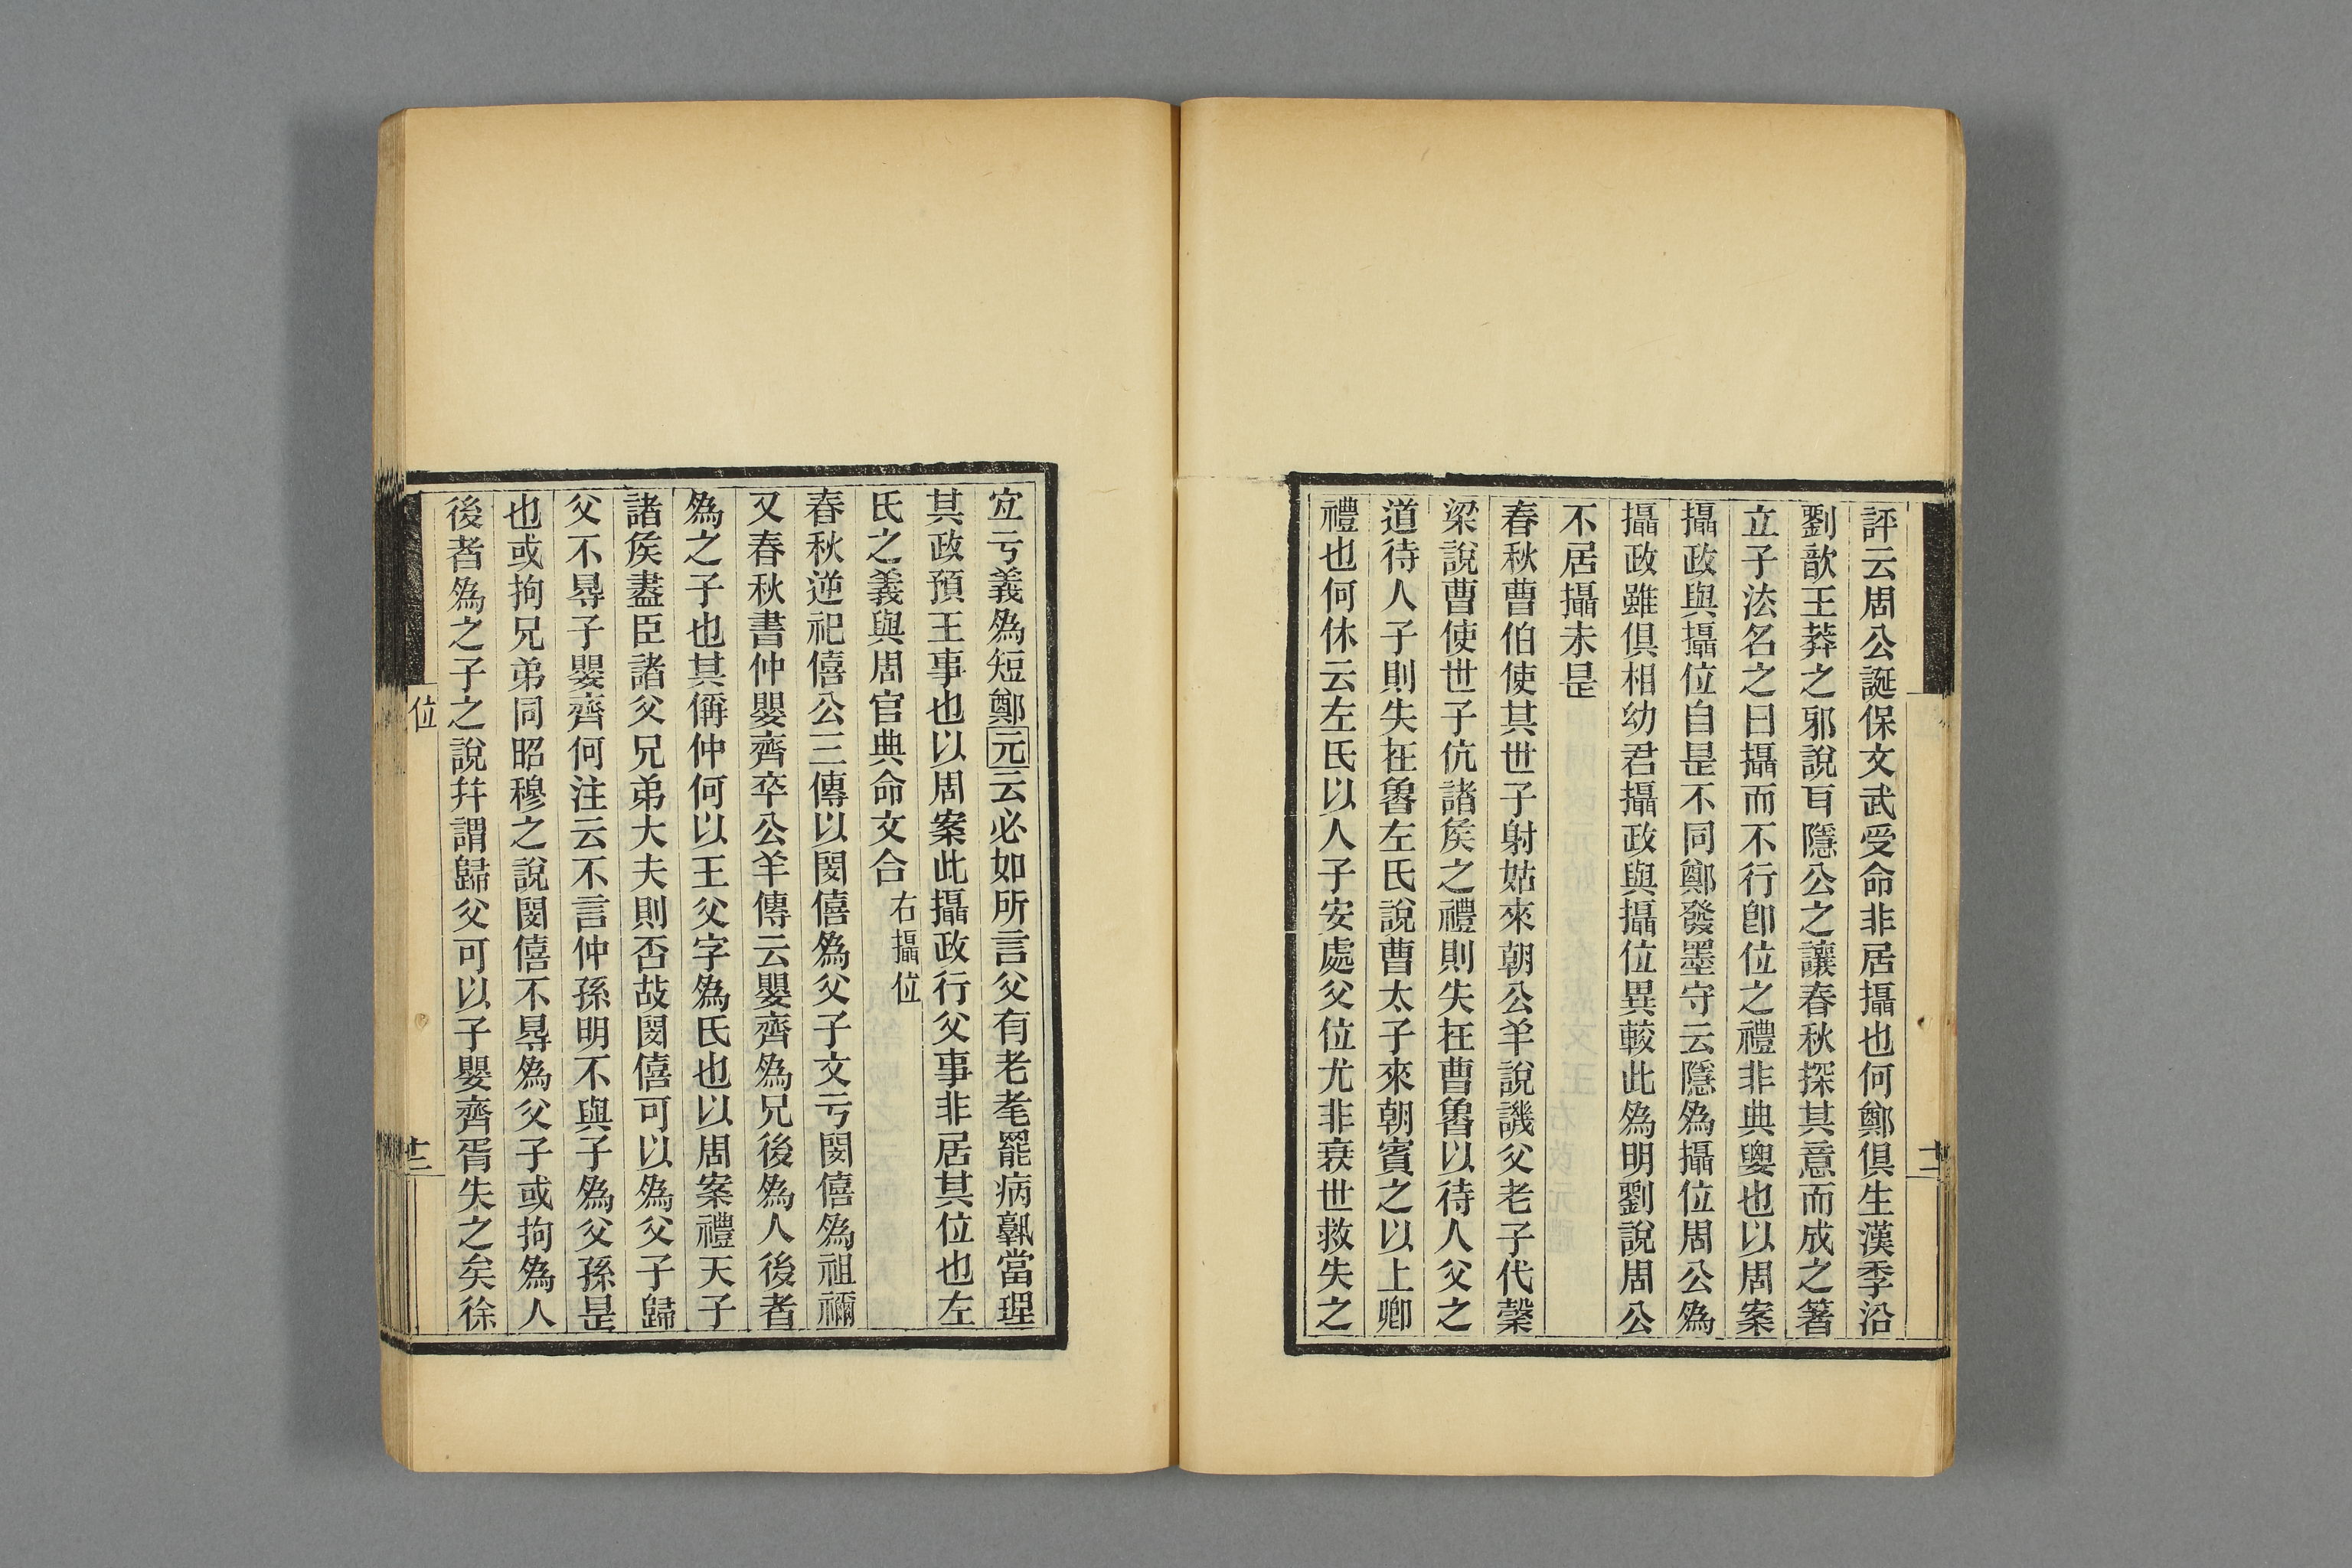 評云周公誕保文武受命非居攝也何鄭俱生漢季沿
劉歆王莽之邪說耳隱公之讓春秋探其意而成之箸
立子法名之曰攝而不行卽位之禮非典㪅也以周案
攝政與攝位自昰不同鄭發墨守云隱爲攝位周公爲
攝政雖俱相幼君攝政與攝位異較此爲明劉說周公
不居攝未昰
春秋曹伯使其世子射姑來朝公羊說譏父老子代𣡸
梁說曹使世子伉諸矦之禮則失在曹魯以待人父之
道待人子則失在魯左氏說曹太子來朝賓之以上卿
禮也何休云左氏以人子安處父位尤非衰世救失之
宐亏義爲短鄭元云必如所言父有老耄罷病孰當理
其政預王事也以周案此攝政行父事非居其位也左
氏之義與周官典命文合 右攝位
春秋逆祀僖公三傳以閔僖爲父子文亏閔僖爲祖禰
又春秋書仲嬰齊卒公羊傳云嬰齊爲兄後爲人後者
爲之子也其偁仲何以王父字爲氏也以周案禮天子
諸矦盡臣諸父兄弟大夫則否故閔僖可以爲父子歸
父不㝵子嬰齊何注云不言仲孫明不與子爲父孫昰
也或拘兄弟同昭穆之說閔僖不㝵爲父子或拘爲人
後者爲之子之說幷謂歸父可以子嬰齊胥失之矣徐
位
十二
十三